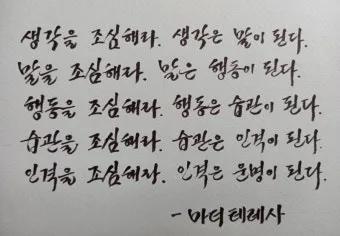 생각을 조심해라. 생각은 말이 된다.
말을 조심해라. 말은 행동이 된다.
행동을 조심해라. 행동은 습관이 된다.
습관을 조심해라. 습관은 인격이 된다.
인격을 조심해라. 인격은 운명이 된다.
- 마더 테레사